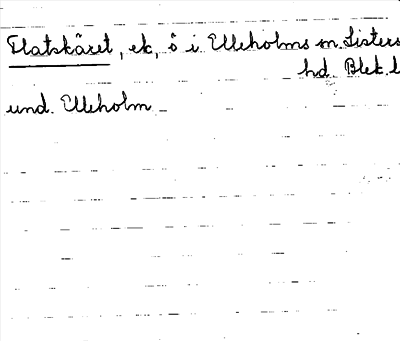 Flatskäret, ek, ö i Elleholms sn. Listers
hd. Blek. l
und. Elleholm